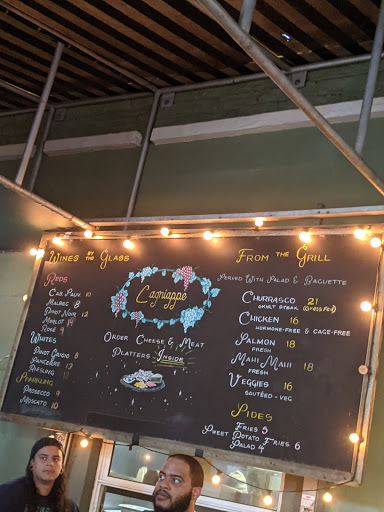 Wines by the Glass
Reds
Cab Sauv 10
Malbec 8
Pinot Noir 12
Merlot 14
Rosé 9
Whites
Pinot Grigio 8
Sancerre
Riesling 11
Sparkling
Prosecco 9
Moscato 10
Lagniappe
Order Cheese & Meat
Platters Inside
From the Grill
Served With Salad & Baguette
Churrasco 21
Skirt Steak (Grass Fed)
Chicken 16
Hormone-Free & Cage-Free
Salmon 18
Fresh
Mahi Mahi 18
Fresh
Veggies 16
Sautéed - Veg
Sides
Fries 5
Sweet Potato Fries 6
Salad 4